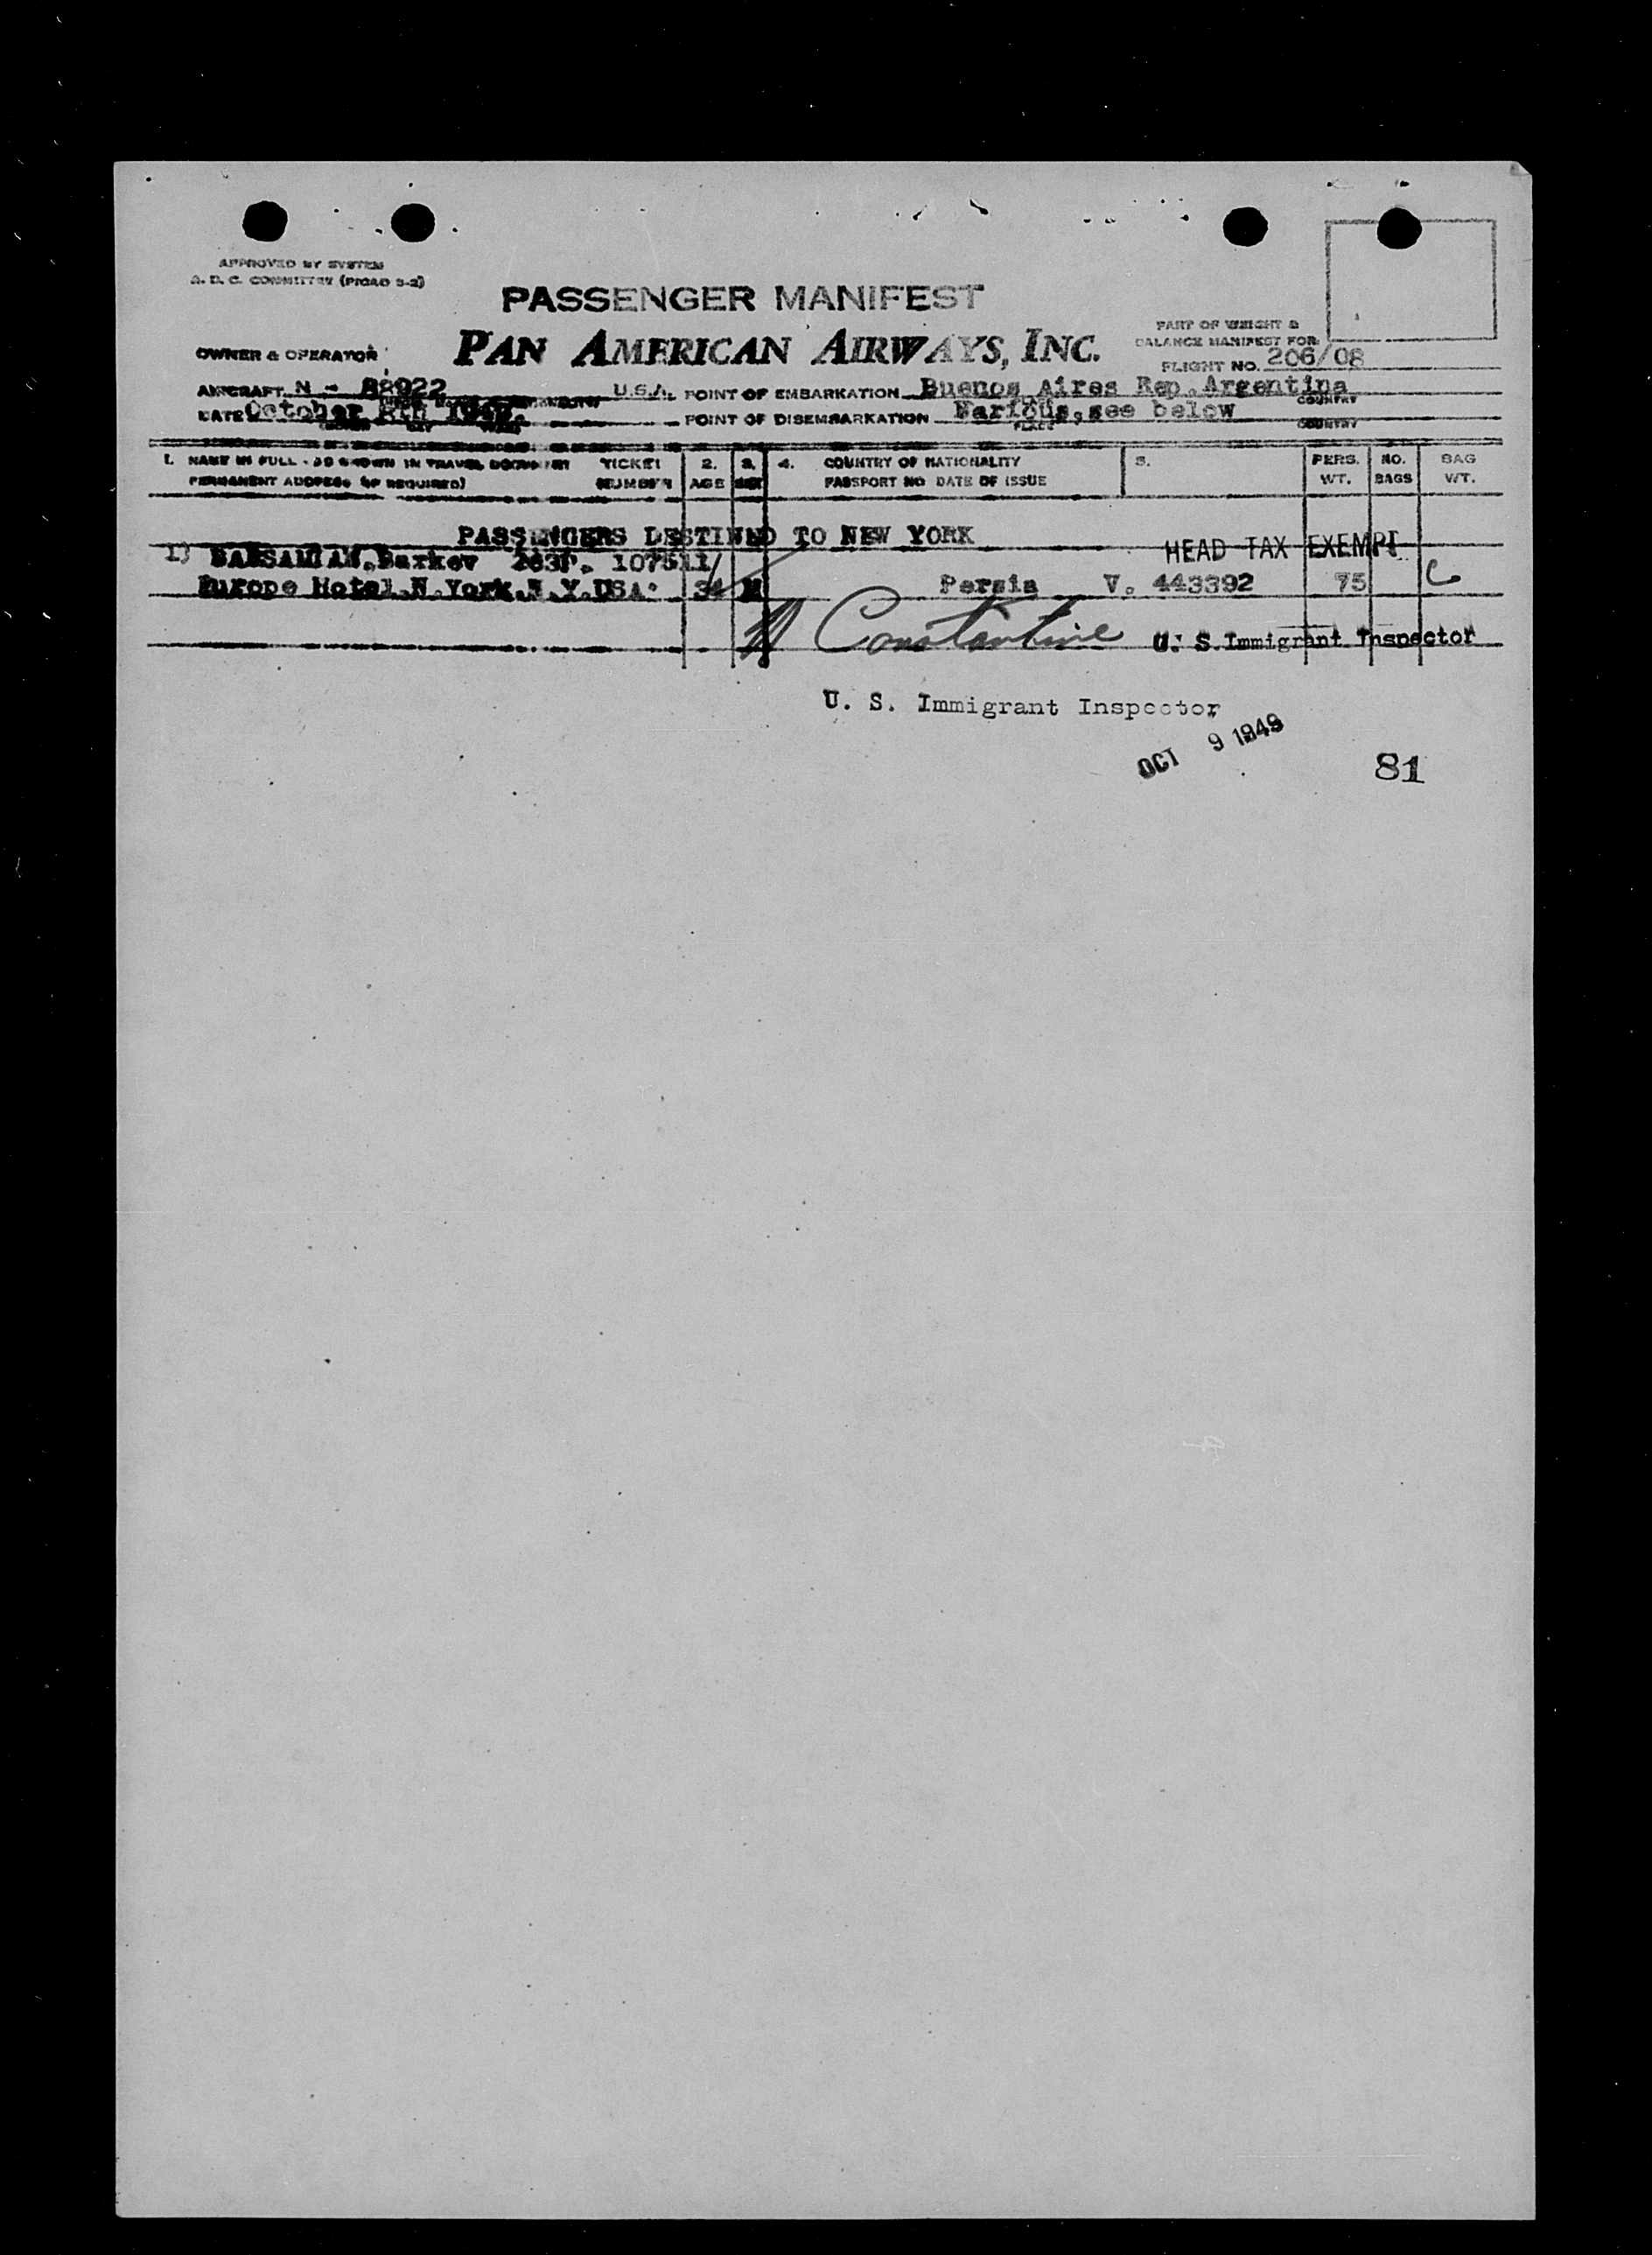 APPROVED BY SYSTEM
A. D. C. COMMITTEE (PICAO S-2)
PASSENGER MANIFEST
PART OF WEIGHT &
BALANCE MANIFEST FOR
OWNER & OPERATOR PAN AMERICAN AIRWAYS, INC.
FLIGHT NO. 206/08
AIRCRAFT N - 88922 U.S.A. POINT OF EMBARKATION Buenos Aires Rep. Argentina
COUNTRY
DATE October 8th POINT OF DISEMBARKATION Various, see below
PLACE COUNTRY
1. NAME IN FULL - AS SHOWN IN TRAVEL DOCUMENT TICKET 2. 3. 4. COUNTRY OF NATIONALITY 5. PERS. NO. BAG
PERMANENT ADDRESS (IF REQUIRED) NUMBER AGE SEX PASSPORT NO DATE OF ISSUE WT. BAGS WT.
PASSENGERS DESTINED TO NEW YORK
HEAD TAX EXEMPT
1) BARSAMIAN, Barkev 107511/
Europe Hotel.N.York.N.Y.USA. 34 M Persia V. 443392 75
Constantine U. S. Immigrant Inspector
U. S. Immigrant Inspector
OCT 9 1949
81